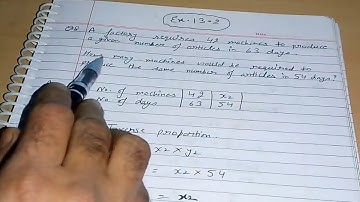 Ex-13.2
Q8 A factory requires 42 machines to produce
a given number of articles in 63 days.
How many machines would be required to
the same number of articles in 54 days?
No. of machines 42 x2
No of days 63 54
proportion
x2 × y2
= x2 × 54
= x2